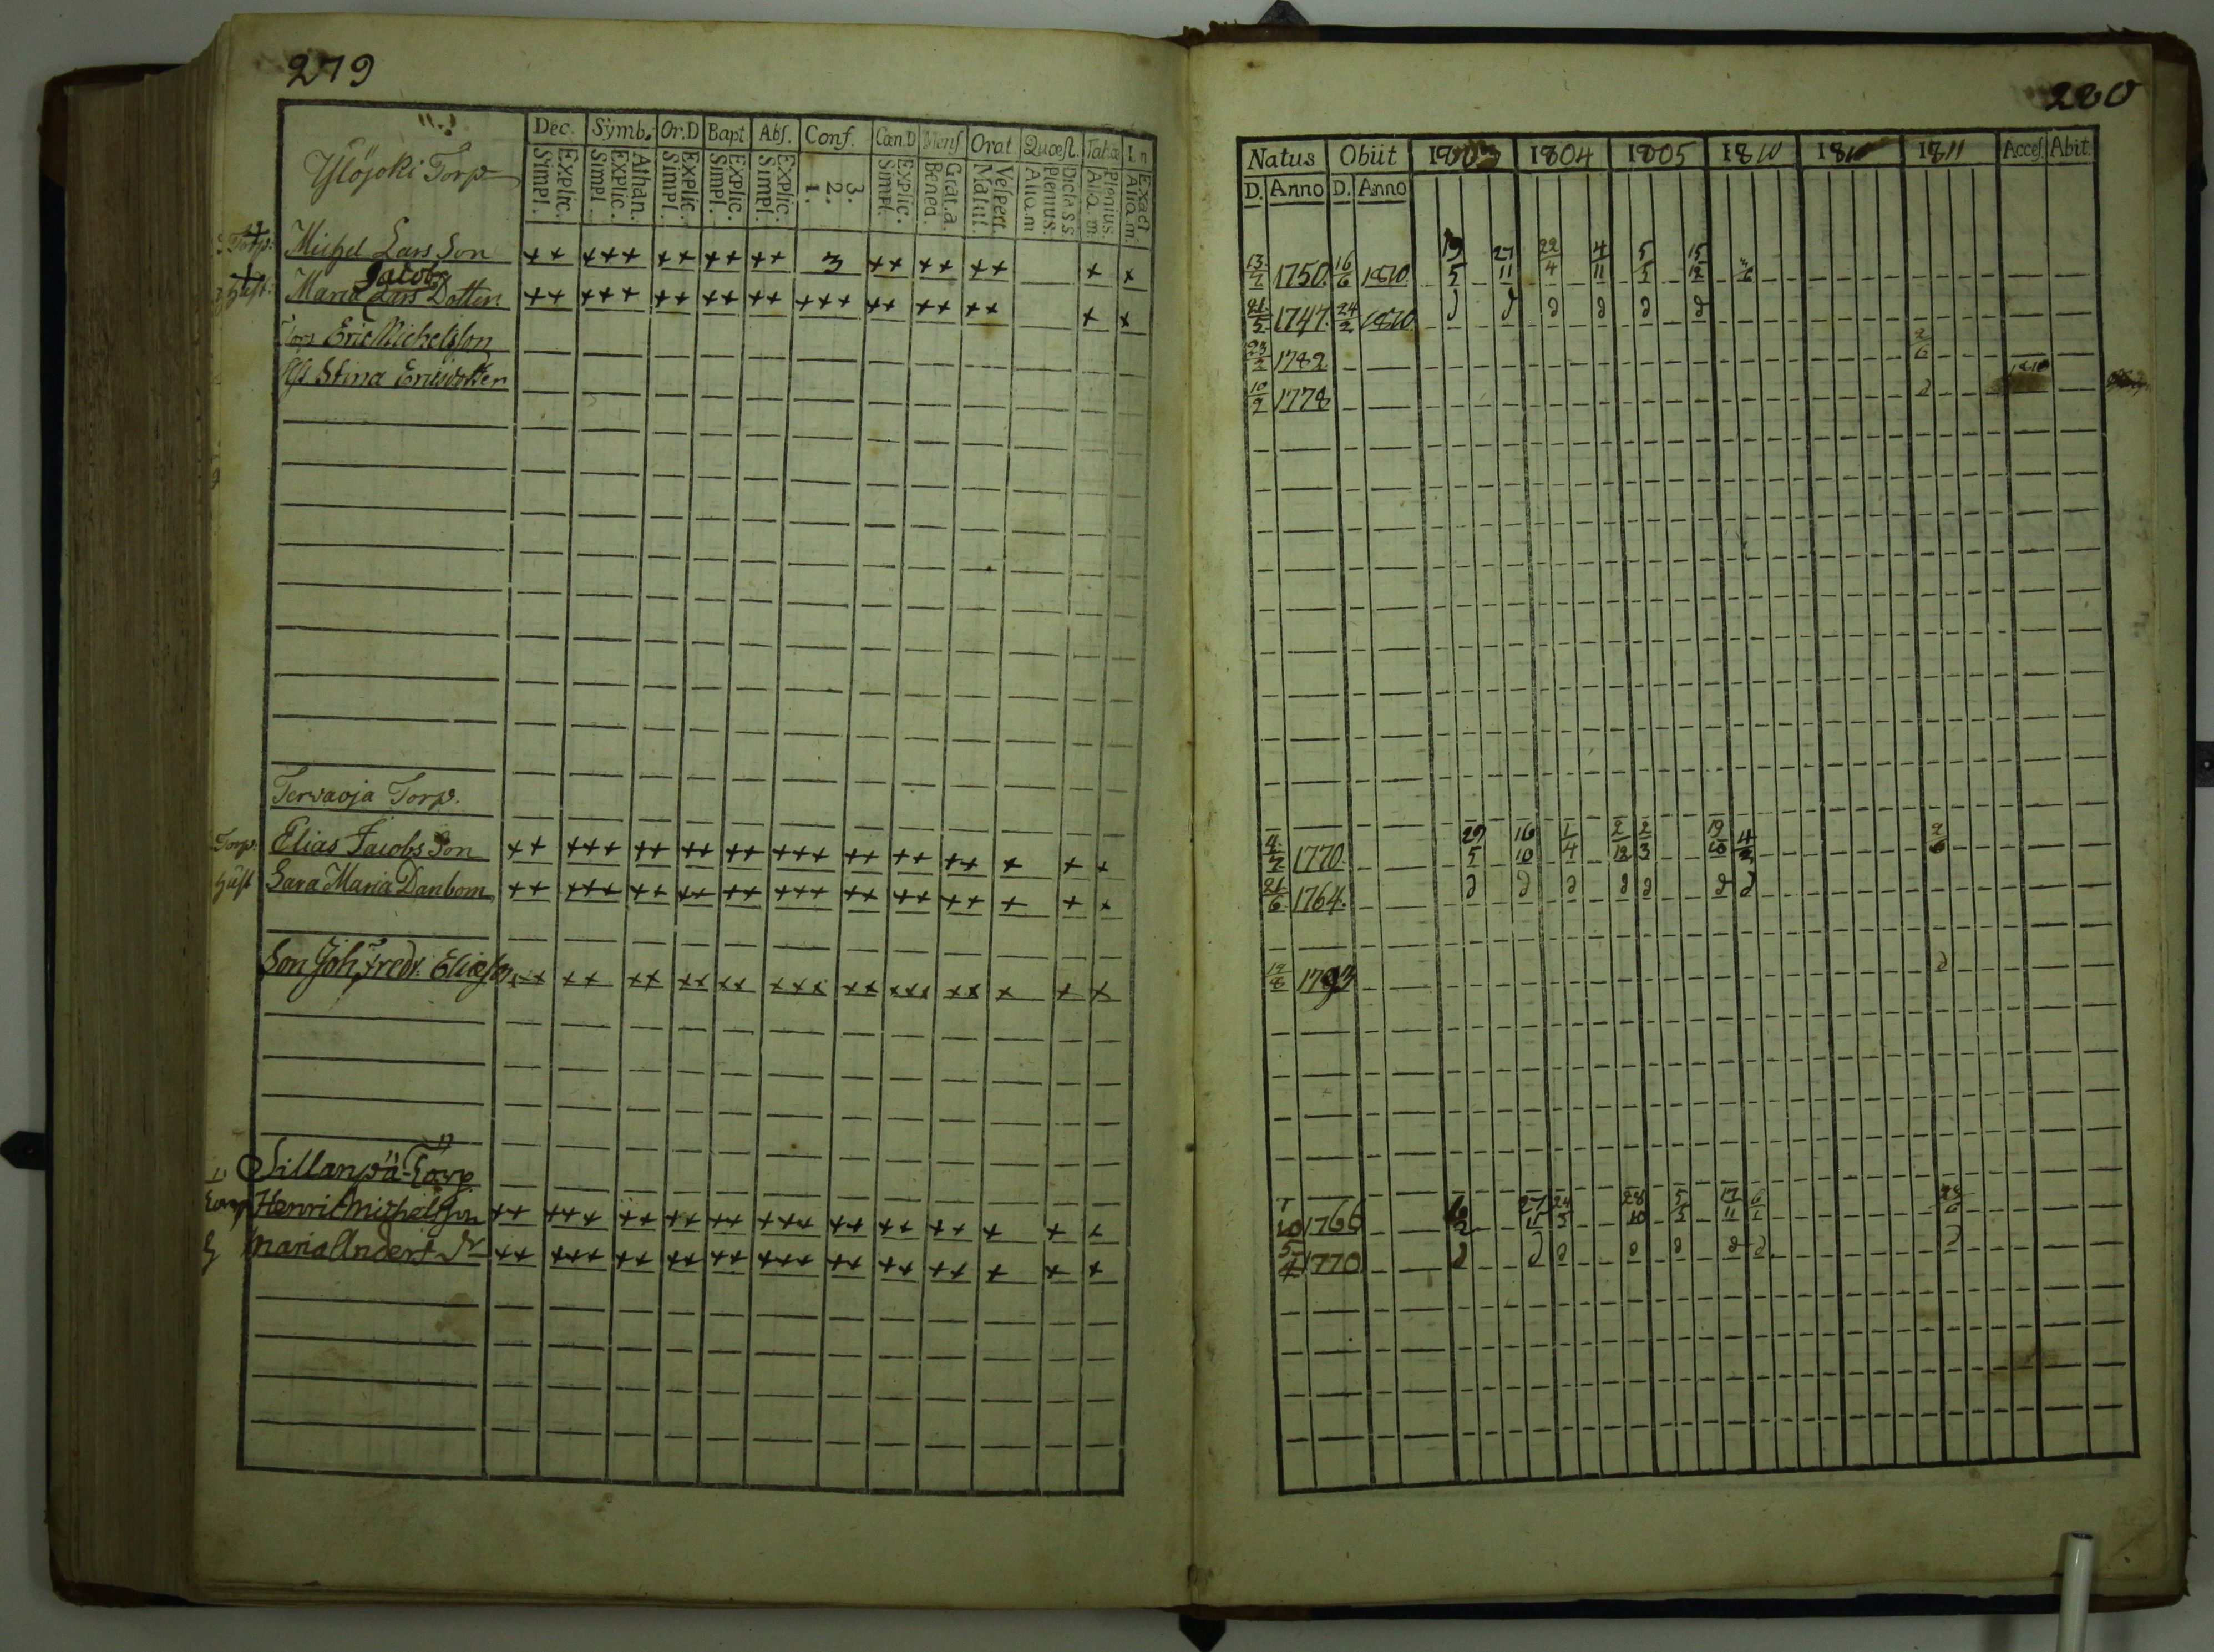 279
Ylöjoki Torp
Dec. Symb. Or.D Bapt Abs. Conf. Cœn.D Mens Orat. Quœst. Tab.œ L n
Simpl. Explic. Simpl. Explic. Athan. Simpl. Explic. Simpl. Explic. Simpl. Explic. 1. 2. 3. Simpl. Explic. Bened. Grat.a. Matut. Vespert. Aliq.m Plenius. Dicta S.S. Aliq.m Plenius. Aliq.m Exact
Torp: Michel Lars Son ++ +++ ++ ++ ++ 3 ++ ++ ++ + +
Hust: Maria Lars Jacobs Dotter ++ +++ ++ ++ ++ +++ ++ ++ ++ + +
Torp Eric Michelsson
Hst Stina Ericsdotter
Terwaoja Torp.
Torp. Elias Jacobs Son ++ +++ ++ ++ ++ +++ ++ ++ ++ + + +
Hust Sara Maria Danbom ++ +++ ++ ++ ++ +++ ++ ++ ++ + + +
Son Joh Fredr. Eliæson ++ ++ ++ ++ ++ +++ ++ +++ ++ + + +
Sillanpä Torp
Torp Henric Michelsson ++ +++ ++ ++ ++ +++ ++ ++ ++ + + +
H Maria Anders Dr ++ +++ ++ ++ ++ +++ ++ ++ ++ + + +
280
Natus Obiit 1803 1804 1805 1810 1811 Acces. Abit.
D. Anno D. Anno
13/7 1750. 16/6 1810. 19/5 27/11 22/4 4/11 5/5 15/12
21/5 1747. 24/2 1810. d d d d d d
23/2 1782 2/6
10/2 1778 d 1810
4/7 1770. 29/5 16/10 1/4 2/12 2/3 19/10 2/6
21/6 1764. d d d d d d d
19/8 1793 d
7/10 1766 27/11 24/5 28/10 5/5 17/11
5/4 1770 d d d d d d d d